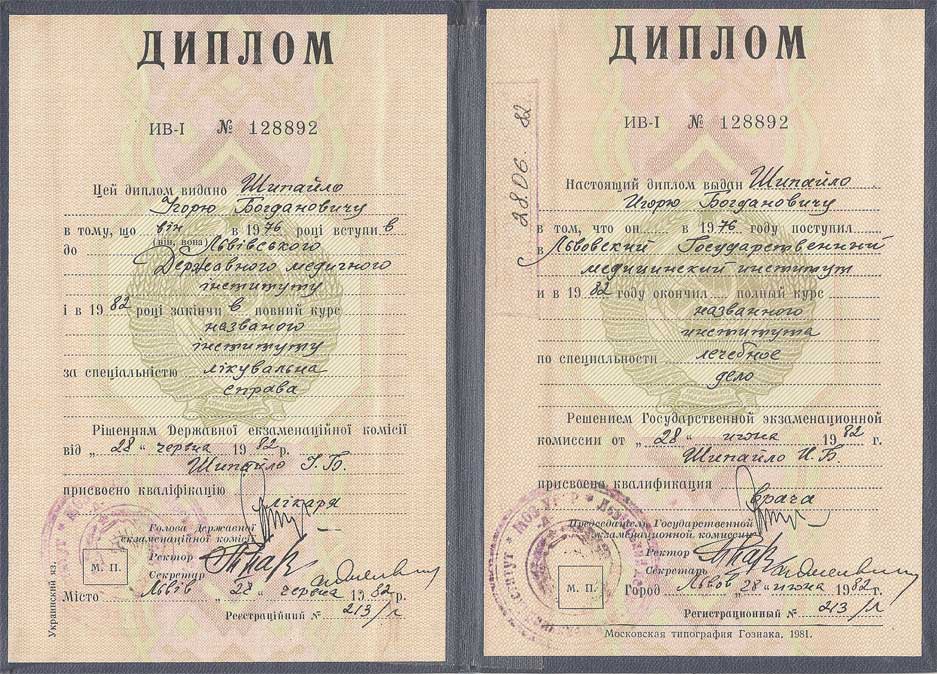 ДИПЛОМ
ИВ-I № 128892
Цей диплом видано Шипайло
Ігорю Богдановичу
в тому, що він в 1976 році вступи в
(він, вона)
до Львівського
Державного медичного
інституту
і в 1982 році закінчи в повний курс
названого
інституту
за спеціальністю лікувальна
справа
Рішенням Державної екзаменаційної комісії
від „28“ червня 1982 р.
Шипайло І. Б.
присвоєно кваліфікацію
лікаря
Голова Державної
екзаменаційної комісії
Ректор
Секретар
М. П.
Місто Львів „28“ червня 1982 р.
Реєстраційний № 213/л
Украинский кз.
ДИПЛОМ
ИВ-I № 128892
28 06. 82
Настоящий диплом выдан Шипайло
Игорю Богдановичу
в том, что он в 1976 году поступил
в Львовский Государственный
медицинский институт
и в 1982 году окончил полный курс
названного
института
по специальности лечебное
дело
Решением Государственной экзаменационной
комиссии от „28“ июня 1982 г.
Шипайло И. Б.
присвоена квалификация
врача
Председатель Государственной
экзаменационной комиссии
Ректор
Секретарь
М. П.
Город Львов „28“ июня 1982 г.
Регистрационный № 213/л
Московская типография Гознака. 1981.